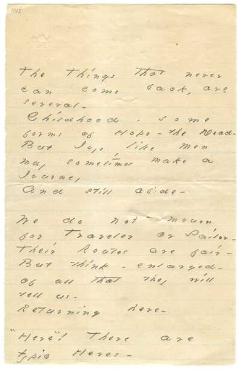 The Things that never
can come back, are
several -
Childhood - some
forms of Hope - the Dead -
But Joys, like Men
may sometimes make a
Journey
And still abide -
We do not mourn
for Traveler or Sailor -
Their Routes are fair -
But think - enlarged -
of all that they will
tell us -
Returning here -
"Here"! There are
typic Heres -